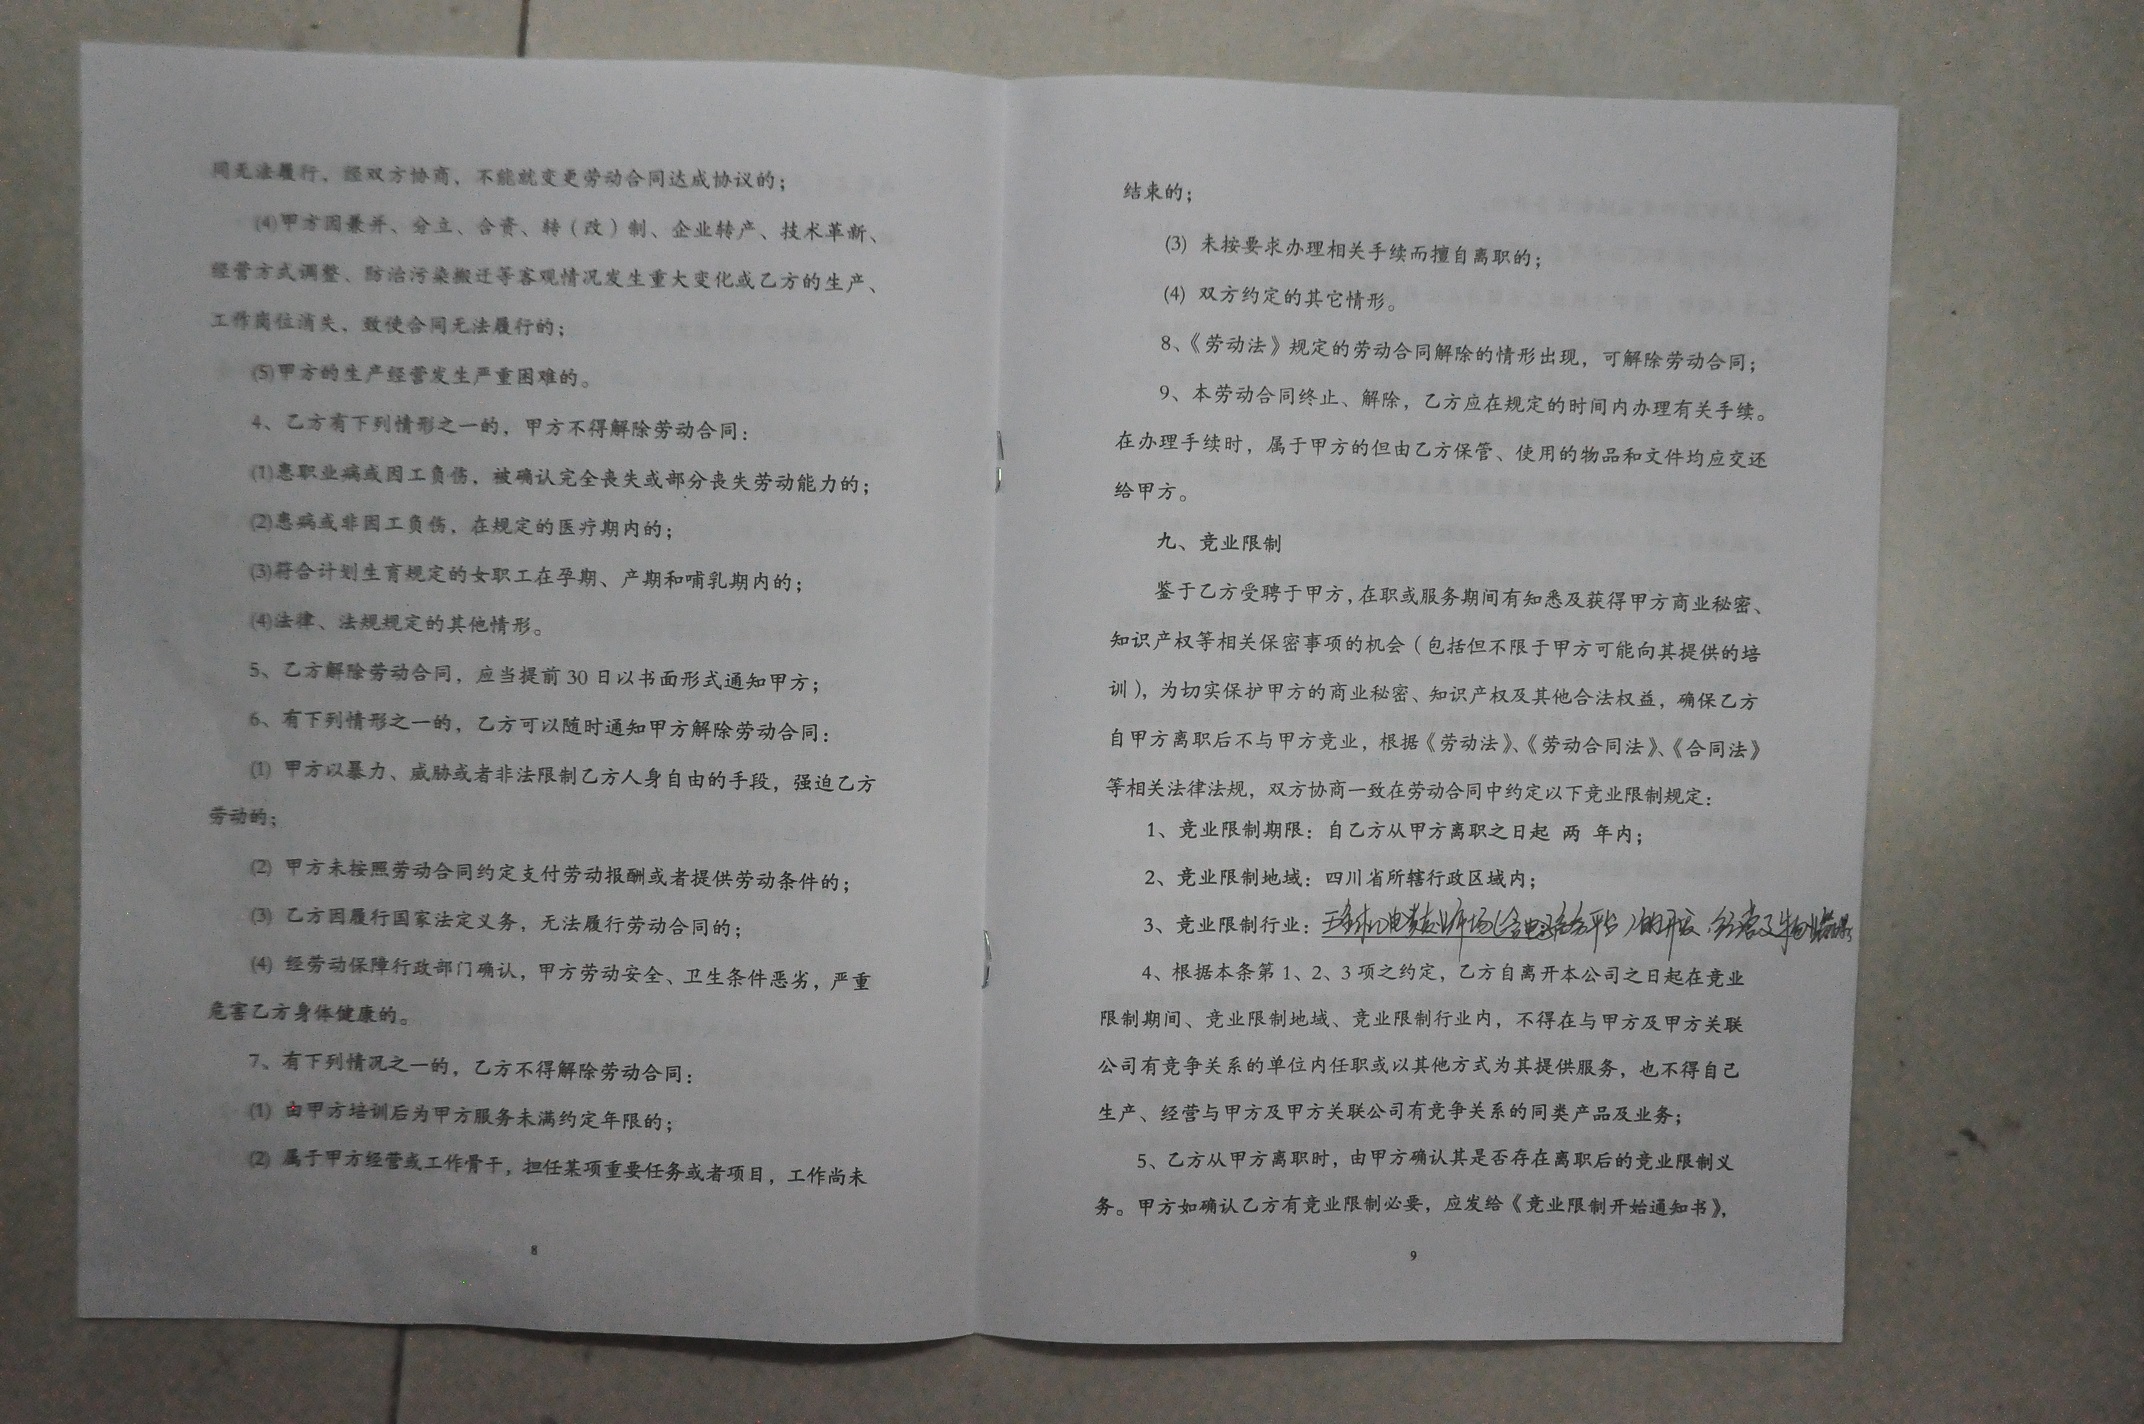 同无法履行，经双方协商，不能就变更劳动合同达成协议的；
(4)甲方因兼并、分立、合资、转（改）制、企业转产、技术革新、
经营方式调整、防治污染搬迁等客观情况发生重大变化或乙方的生产、
工作岗位消失，致使合同无法履行的；
(5)甲方的生产经营发生严重困难的。
4、乙方有下列情形之一的，甲方不得解除劳动合同：
(1)患职业病或因工负伤，被确认完全丧失或部分丧失劳动能力的；
(2)患病或非因工负伤，在规定的医疗期内的；
(3)符合计划生育规定的女职工在孕期、产期和哺乳期内的；
(4)法律、法规规定的其他情形。
5、乙方解除劳动合同，应当提前 30 日以书面形式通知甲方；
6、有下列情形之一的，乙方可以随时通知甲方解除劳动合同：
(1) 甲方以暴力、威胁或者非法限制乙方人身自由的手段，强迫乙方
劳动的；
(2) 甲方未按照劳动合同约定支付劳动报酬或者提供劳动条件的；
(3) 乙方因履行国家法定义务，无法履行劳动合同的；
(4) 经劳动保障行政部门确认，甲方劳动安全、卫生条件恶劣，严重
危害乙方身体健康的。
7、有下列情况之一的，乙方不得解除劳动合同：
(1) 由甲方培训后为甲方服务未满约定年限的；
(2) 属于甲方经营或工作骨干，担任某项重要任务或者项目，工作尚未
8
结束的；
(3) 未按要求办理相关手续而擅自离职的；
(4) 双方约定的其它情形。
8、《劳动法》规定的劳动合同解除的情形出现，可解除劳动合同；
9、本劳动合同终止、解除，乙方应在规定的时间内办理有关手续。
在办理手续时，属于甲方的但由乙方保管、使用的物品和文件均应交还
给甲方。
九、竞业限制
鉴于乙方受聘于甲方，在职或服务期间有知悉及获得甲方商业秘密、
知识产权等相关保密事项的机会（包括但不限于甲方可能向其提供的培
训），为切实保护甲方的商业秘密、知识产权及其他合法权益，确保乙方
自甲方离职后不与甲方竞业，根据《劳动法》、《劳动合同法》、《合同法》
等相关法律法规，双方协商一致在劳动合同中约定以下竞业限制规定：
1、竞业限制期限：自乙方从甲方离职之日起 两 年内；
2、竞业限制地域：四川省所辖行政区域内；
3、竞业限制行业：机电专业市场（含电子商务平台）的开发、经营及物业
4、根据本条第 1、2、3 项之约定，乙方自离开本公司之日起在竞业
限制期间、竞业限制地域、竞业限制行业内，不得在与甲方及甲方关联
公司有竞争关系的单位内任职或以其他方式为其提供服务，也不得自己
生产、经营与甲方及甲方关联公司有竞争关系的同类产品及业务；
5、乙方从甲方离职时，由甲方确认其是否存在离职后的竞业限制义
务。甲方如确认乙方有竞业限制必要，应发给《竞业限制开始通知书》，
9